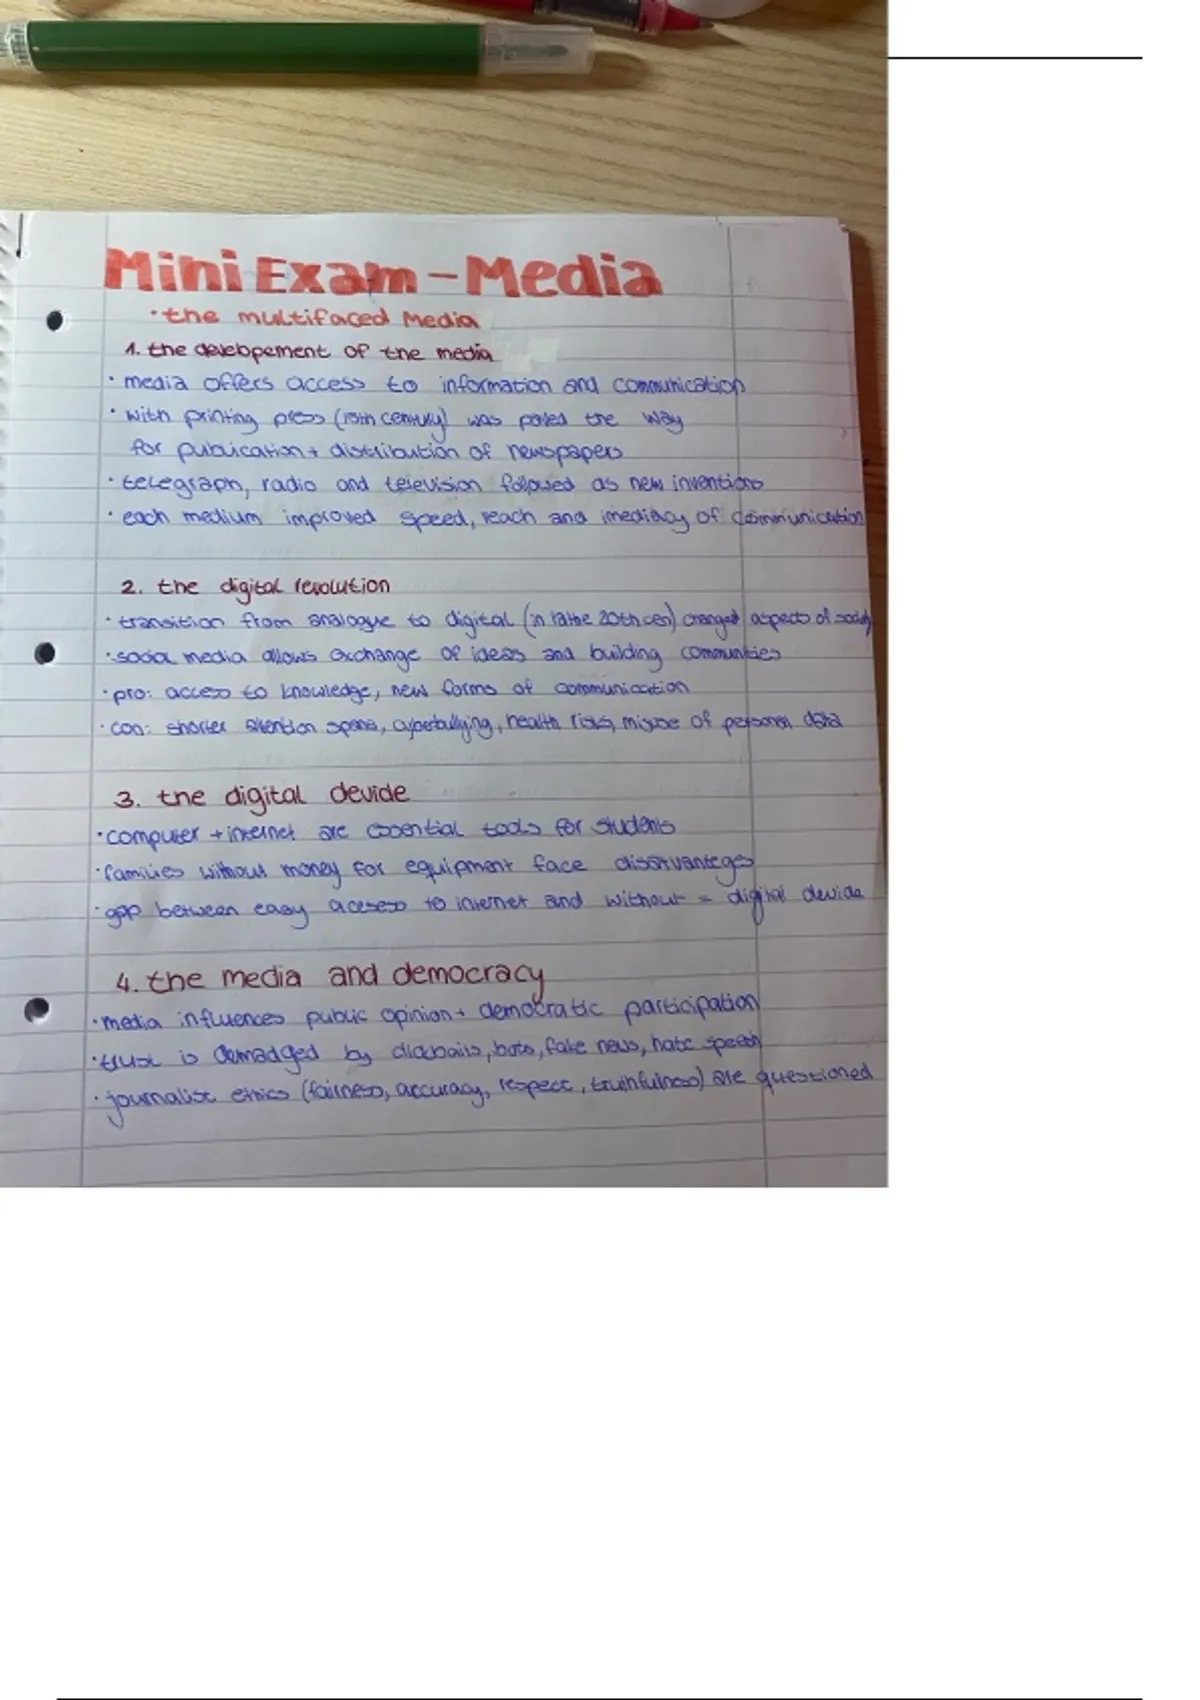 Mini Exam - Media
• the multifaced Media
1. the developement of the media
• media offers access to information and communication
• with printing press (15th century) was paved the way
for publication + distribution of newspapers
• telegraph, radio and television followed as new inventions
• each medium improved speed, reach and imediacy of communication
2. the digital revolution
• transition from analogue to digital (in the 20th cen) changed aspects of society
• social media allows exchange of ideas and building communities
• pro: access to knowledge, new forms of communication
• con: shorter attention spans, cyberbullying, health risks, misuse of personal data
3. the digital devide
• computer + internet are essential tools for students
• families without money for equipment face disatvanteges
• gap between easy acesess to internet and without = digital devide
4. the media and democracy
• media influences public opinion + democratic participation
• trust is damadged by clickbaits, bots, fake news, hate speech
• journalist ethics (fairness, accuracy, respect, truthfulness) are questioned